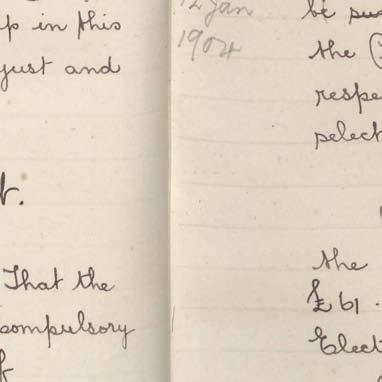 up in this
just and
t.
That the
compulsory
12 Jan
1904
be
the
respe
select
the
£61.
Elect